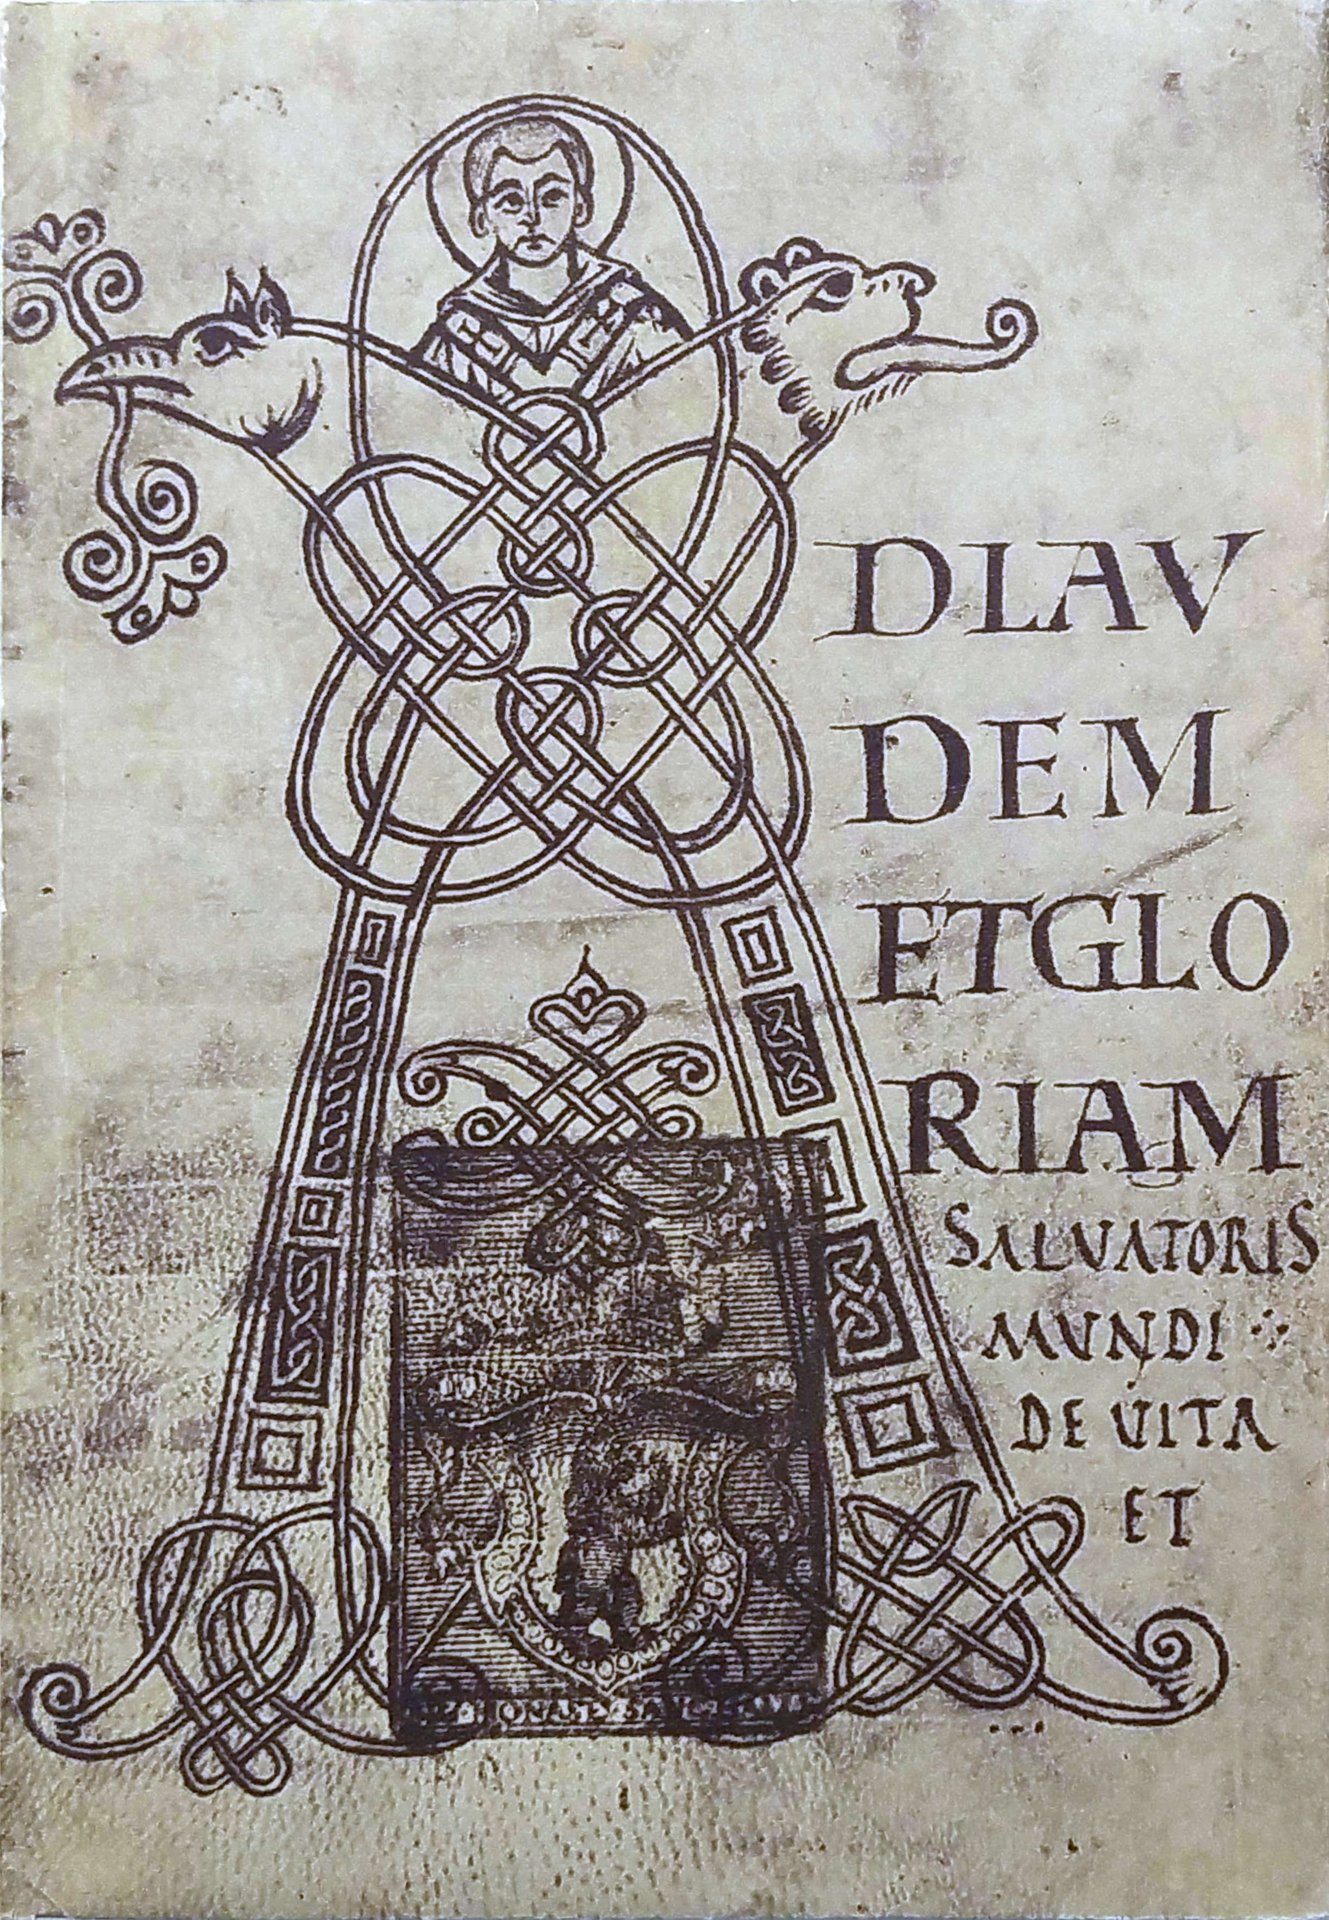 A
DLAV
DEM
ETGLO
RIAM
SALVATORIS
MUNDI
DE UITA
ET